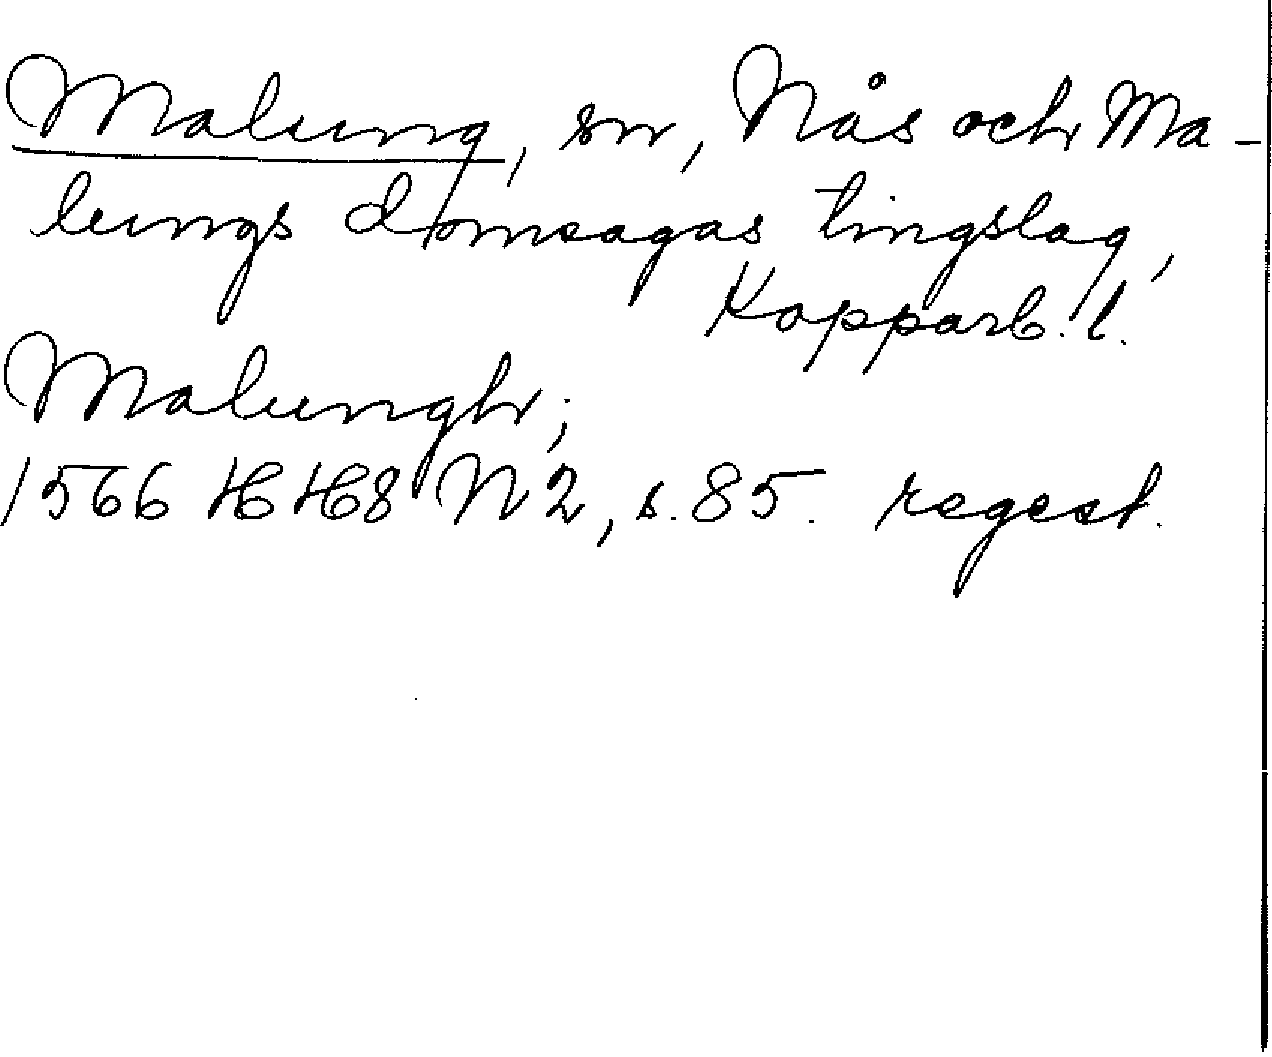 Malung, sn, Nås och Ma-
lungs domsagas tingslag,
Kopparb. l.
Malungh;
1566 HH 8 N 2, s. 85. regest.